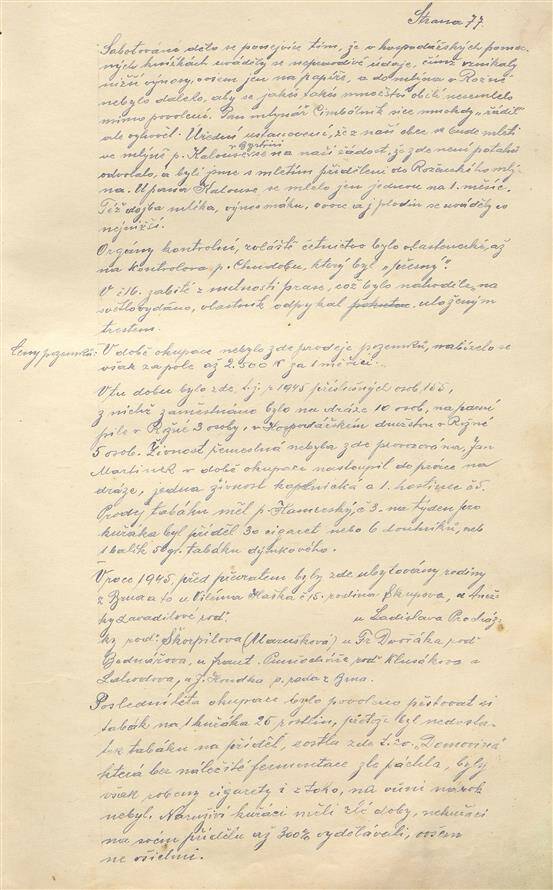 Strana 77.
Sabotováno dělo se ponejvíce tím, že v hospodářských pomoc-
ných knížkách uváděly se nepravdivé údaje, čímž vznikaly
nižší výnosy, ovšem jen na papíře, a do mlýna v Rožné
nebylo daleko, aby se jaké takés množství obilí nesemlelo
mimo povolení. Pan mlynář Cimbálník sice mnohdy „řádil“
ale vyhověl. Úřední ustanovení, že z naší obce se bude mleti
v Bystřici
ve mlýně p. Kalouse se na naši žádost, že zde není potahů
odvolalo, a byli jsme s mletím přiděleni do Rožáckého mlý-
na. U pana Kalouse se mlelo jen jednou na 1. měsíc.
Též dojba mléka, výnos máku, ovoce a j. plodin se uváděly co
nejnižší.
Orgány kontrolní, zvláště četnictvo bylo vlastenecké, až
na kontrolora p. Chudobu, který byl „přesný“.
V č 16. zabité z nutnosti prase, což bylo nahodile na
světlo vydáno, vlastník odpykal uloženým
trestem.
Ceny pozemků: V době okupace nebylo zde prodeje pozemků, nabízelo se
však za pole až 2.500 K za 1 měřici.
V tu dobu bylo zde t.j. r 1945 příslušných osob 165,
z nichž zaměstnáno bylo na dráze 10 osob, na parní
pile v Rožné 3 osoby, v Hospodářském družstvu v Rožné
5 osob. Živnost řemeslná nebyla zde provozována, Jan
Martinek v době okupace nastoupil do práce na
dráze, jedna živnost kapelnická a 1. hostinec č5.
Prodej tabáku měl p. Kamerský, č 3. na týden pro
kuřáka byl příděl 30 cigaret nebo 6 doutníků, neb
1 balík 50 gr. tabáku dýmkového.
V roce 1945, před převratem byly zde ubytovány rodiny
z Brna a to u Viléma Haška č 15. rodina Skupova, u Anež-
ky Zavadilové rod. u Ladislava Procház-
ky rod. Škorpilova (Maruškova) u Fr. Dvořáka rod
Bednářova, u frant. rod Klusákova a
 u J. Hondka p. rada z Brna.
Poslední léta okupace bylo povoleno pěstovat si
tabák na 1 kuřáka 25 rostlin, jelikož byl nedosta-
tek tabáku na příděl, rostla zde t. zv. „Domovina“
která bez náležité fermentace zle páchla, byly
však robeny cigarety i z toho, na vůni nárok
nebyl. Náruživí kuřáci měli zlé doby, nekuřáci
na svém přídělu až 300% vydělávali, ovšem
ne všichni.